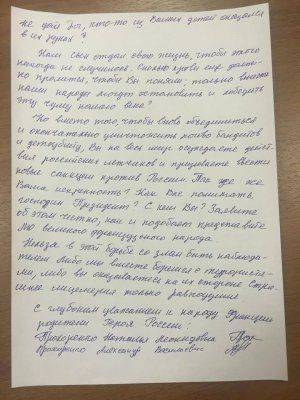 не дай Бог, кто-то из Ваших детей оказался
в их руках?
Наш сын отдал свою жизнь, чтобы этого
никогда не случилось. Сколько крови еще долж-
но пролиться, чтобы Вы поняли: только вместе
наши народы могут остановить и победить
эту чуму нашего века?
Но вместо того чтобы вновь объединиться
и окончательно уничтожить логово бандитов
и детоубийц, Вы на весь мир осуждаете дейст-
вия российских летчиков и призываете ввести
новые санкции против России. Так где же
Ваша искренность? Как Вас понимать,
господин Президент? С кем Вы? Заявите
об этом честно, как и подобает представите-
лю великого французского народа.
Нельзя в этой борьбе со злом быть наблюда-
телем либо мы вместе боремся с террориста-
ми, либо вы оказываетесь на их стороне. Страш-
нее лицемерия только равнодушие
С глубоким уважением к народу Франции
родители Героя России:
Прохоренко Наталья Леонидовна
Прохоренко Александр Васильевич